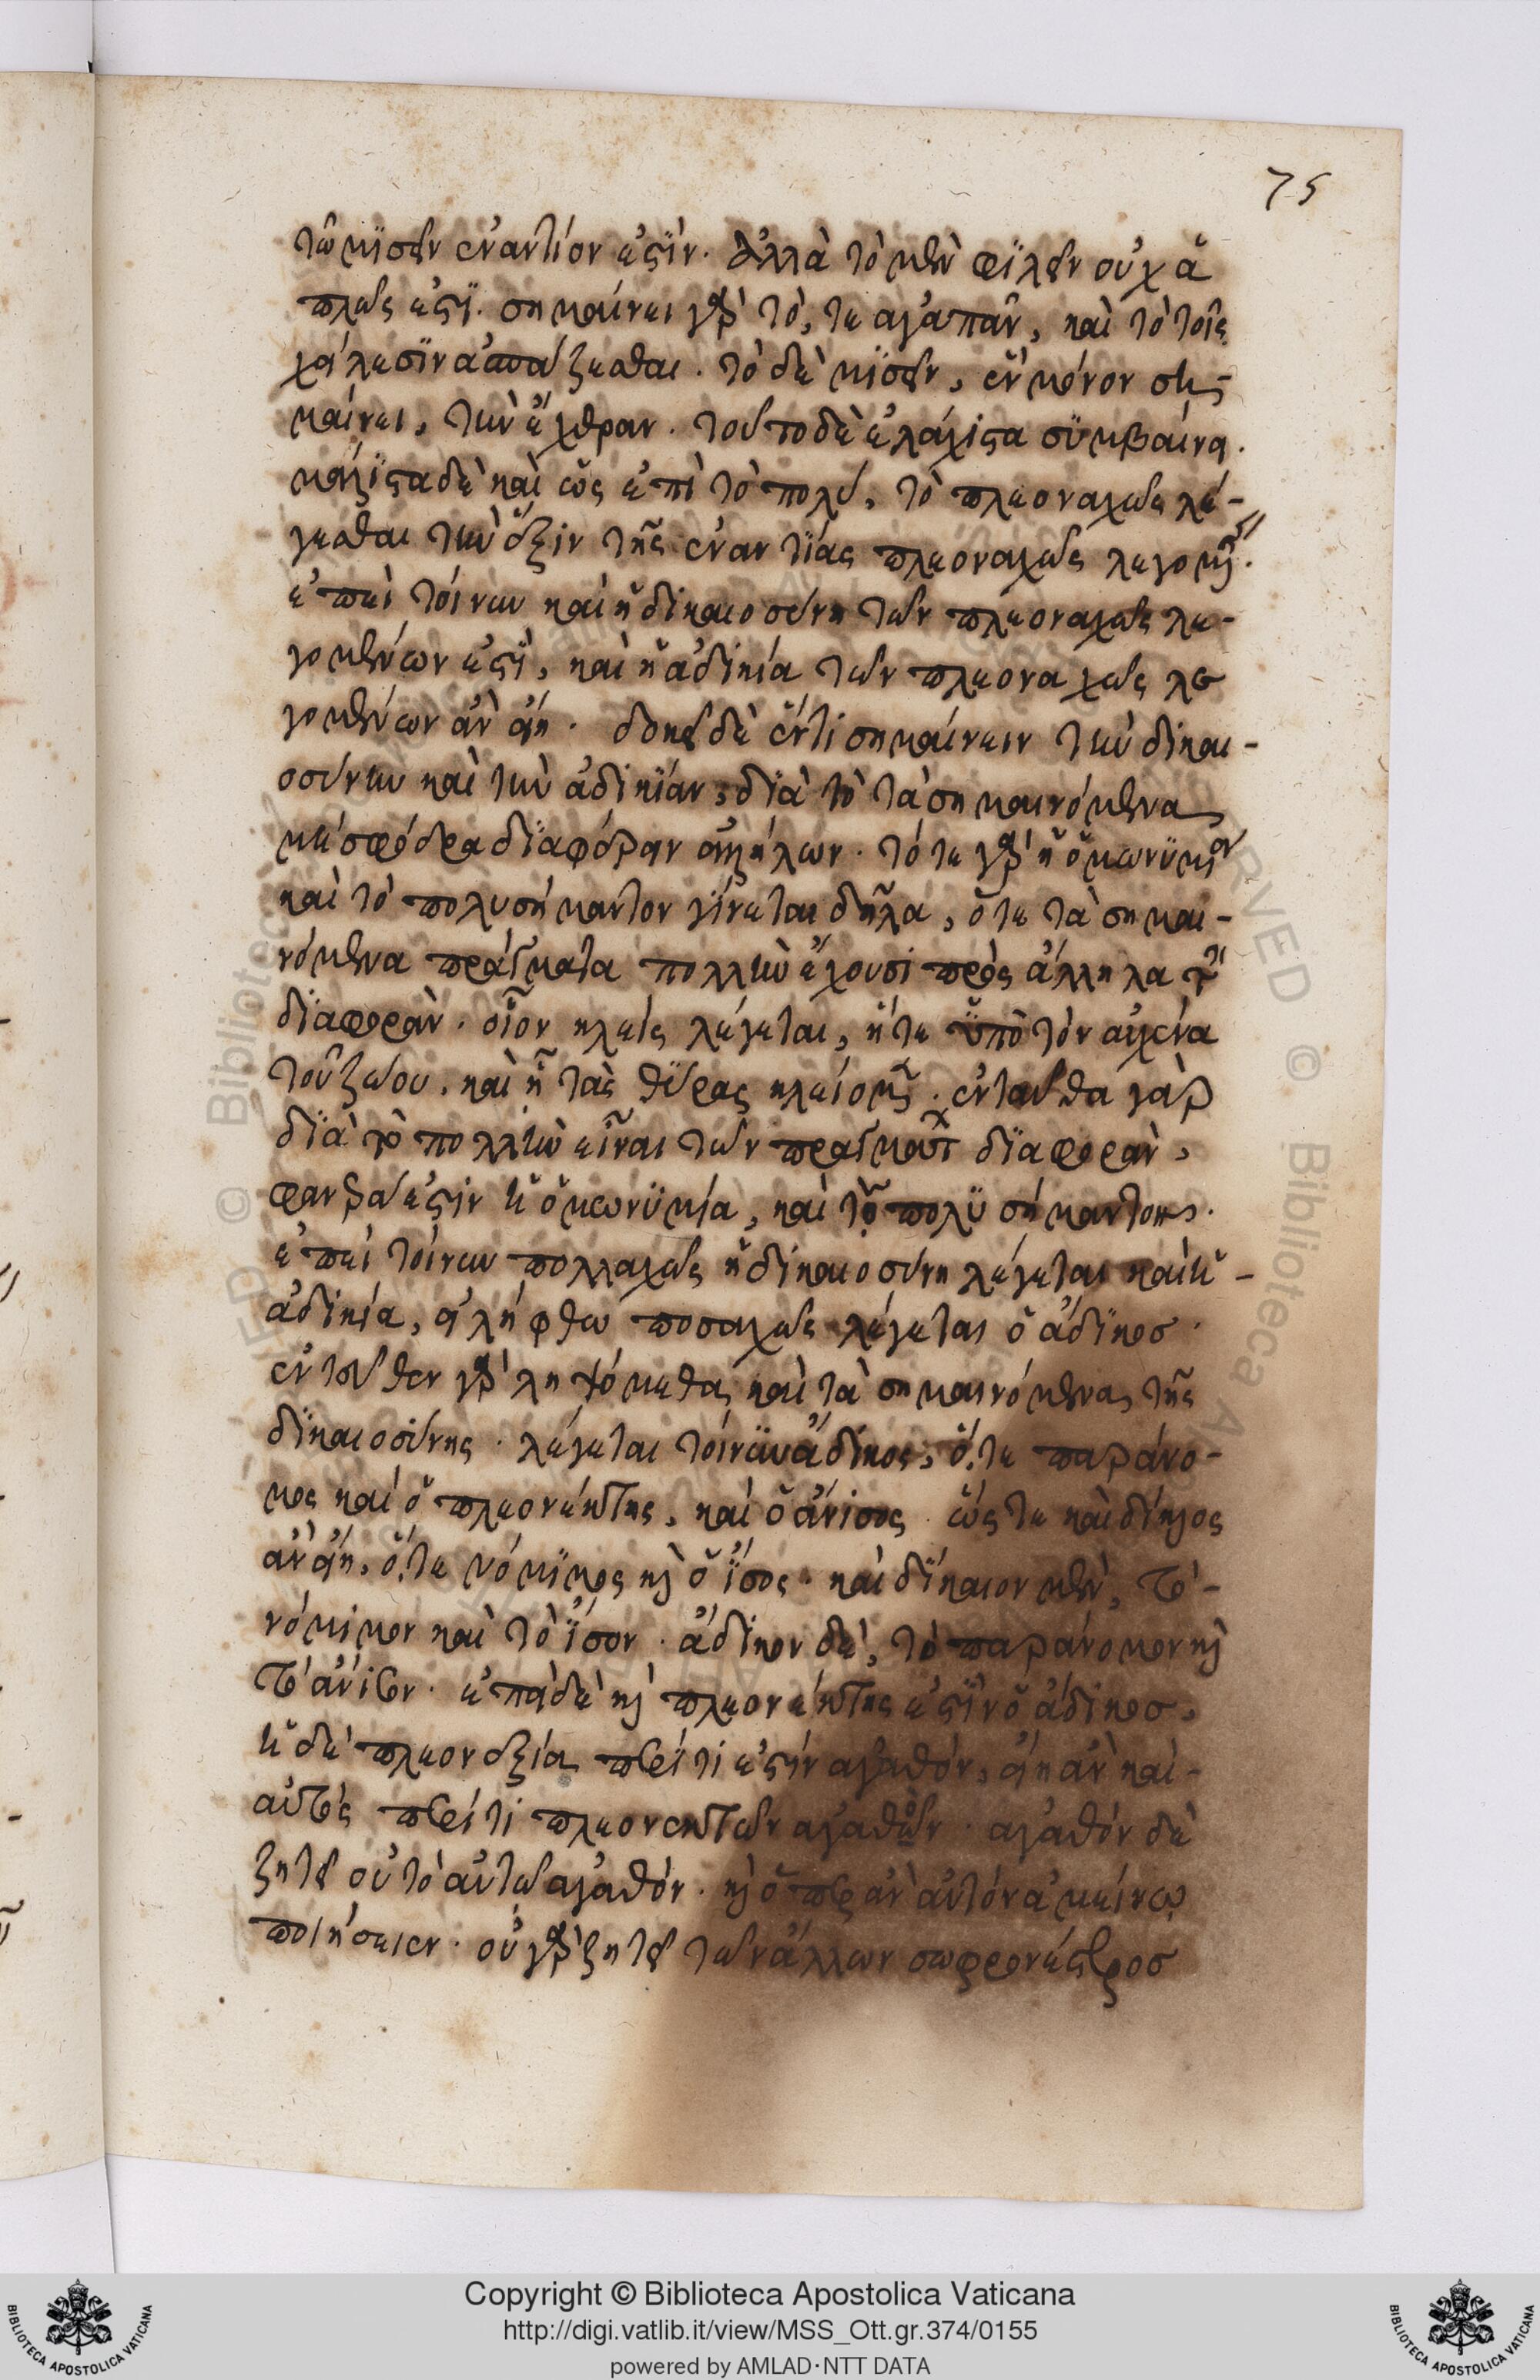 75
τῶ μισεῖν ἐναντίον ἐστὶν. ἀλλὰ τὸ μὲν φιλεῖν οὐχ ἁ
πλῶς ἐστὶ. σημαίνει γὰρ τό, τε ἀγαπᾶν, καὶ τὸ τοῖς
χείλεσιν ἀσπάζεσθαι. τὸ δὲ μισεῖν, ἓν μόνον ση-
μαίνει, τὴν ἔχθραν. τοῦτο δὲ ἐλάχιστα συμβαίνει.
μάλιστα δὲ καὶ ὡς ἐπὶ τὸ πολύ, τὸ πλεοναχῶς λέ-
γεσθαι τὴν ἕξιν τῆς ἐναντίας πλεοναχῶς λεγομένης.
ἐπεὶ τοίνυν καὶ ἡ δικαιοσύνη τῶν πλεοναχῶς λε-
γομένων ἐστὶ, καὶ ἡ ἀδικία τῶν πλεοναχῶς λε
γομένων ἂν εἴη. δοκεῖ δὲ ἕν τι σημαίνειν τὴν δικαι-
οσύνην καὶ τὴν ἀδικίαν, διὰ τὸ τὰ σημαινόμενα
μὴ σφόδρα διαφέρειν ἀλλήλων. τότε γὰρ ἡ ὁμωνυμία
καὶ τὸ πολυσήμαντον γίνεται δῆλα, ὅτε τὰ σημαι-
νόμενα πράγματα πολλὴν ἔχουσι πρὸς ἄλληλα τὴν
διαφορὰν. οἷον κλεὶς λέγεται, ἥ τε ὑπὸ τὸν αὐχένα
τοῦ ζώου. καὶ ᾗ τὰς θύρας κλείομεν. ἐνταῦθα γὰρ
διὰ τὸ πολλὴν εἶναι τῶν πραγμάτων διαφορὰν,
φανερά ἐστιν ἡ ὁμωνυμία, καὶ τὸ πολυσήμαντον.
ἐπεὶ τοίνυν πολλαχῶς ἡ δικαιοσύνη λέγεται καὶ ἡ-
ἀδικία, εἰλήφθω ποσαχῶς λέγεται ὁ ἄδικος.
ἐντεῦθεν γὰρ ληψόμεθα καὶ τὰ σημαινόμενα τῆς
δικαιοσύνης. λέγεται τοίνυν ἄδικος, ὅ, τε παράνο-
μος καὶ ὁ πλεονέκτης, καὶ ὁ ἄνισος. ὥστε καὶ δίκαιος
ἂν εἴη, ὅ, τε νόμιμος καὶ ὁ ἴσος. καὶ δίκαιον μὲν, τὸ-
νόμιμον καὶ τὸ ἴσον. ἄδικον δέ, τὸ παράνομον καὶ
τὸ ἄνισον. ἐπεὶ δὲ καὶ πλεονέκτης ἐστὶν ὁ ἄδικος,
ἡ δὲ πλεονεξία περί τι ἐστὶν ἀγαθόν, εἴη ἂν καὶ-
αὐτὸς περί τι πλεονεκτῶν ἀγαθῶν. ἀγαθὸν δὲ
ζητεῖ οὐ τὸ αὐτῶ ἀγαθόν. καὶ ὅπερ ἂν αὐτὸν ἀμείνω
ποιήσειεν. οὐ γὰρ ζητεῖ τῶν ἄλλων σωφρονέστερος
Copyright © Biblioteca Apostolica Vaticana
http://digi.vatlib.it/view/MSS_Ott.gr.374/0155
powered by AMLAD·NTT DATA